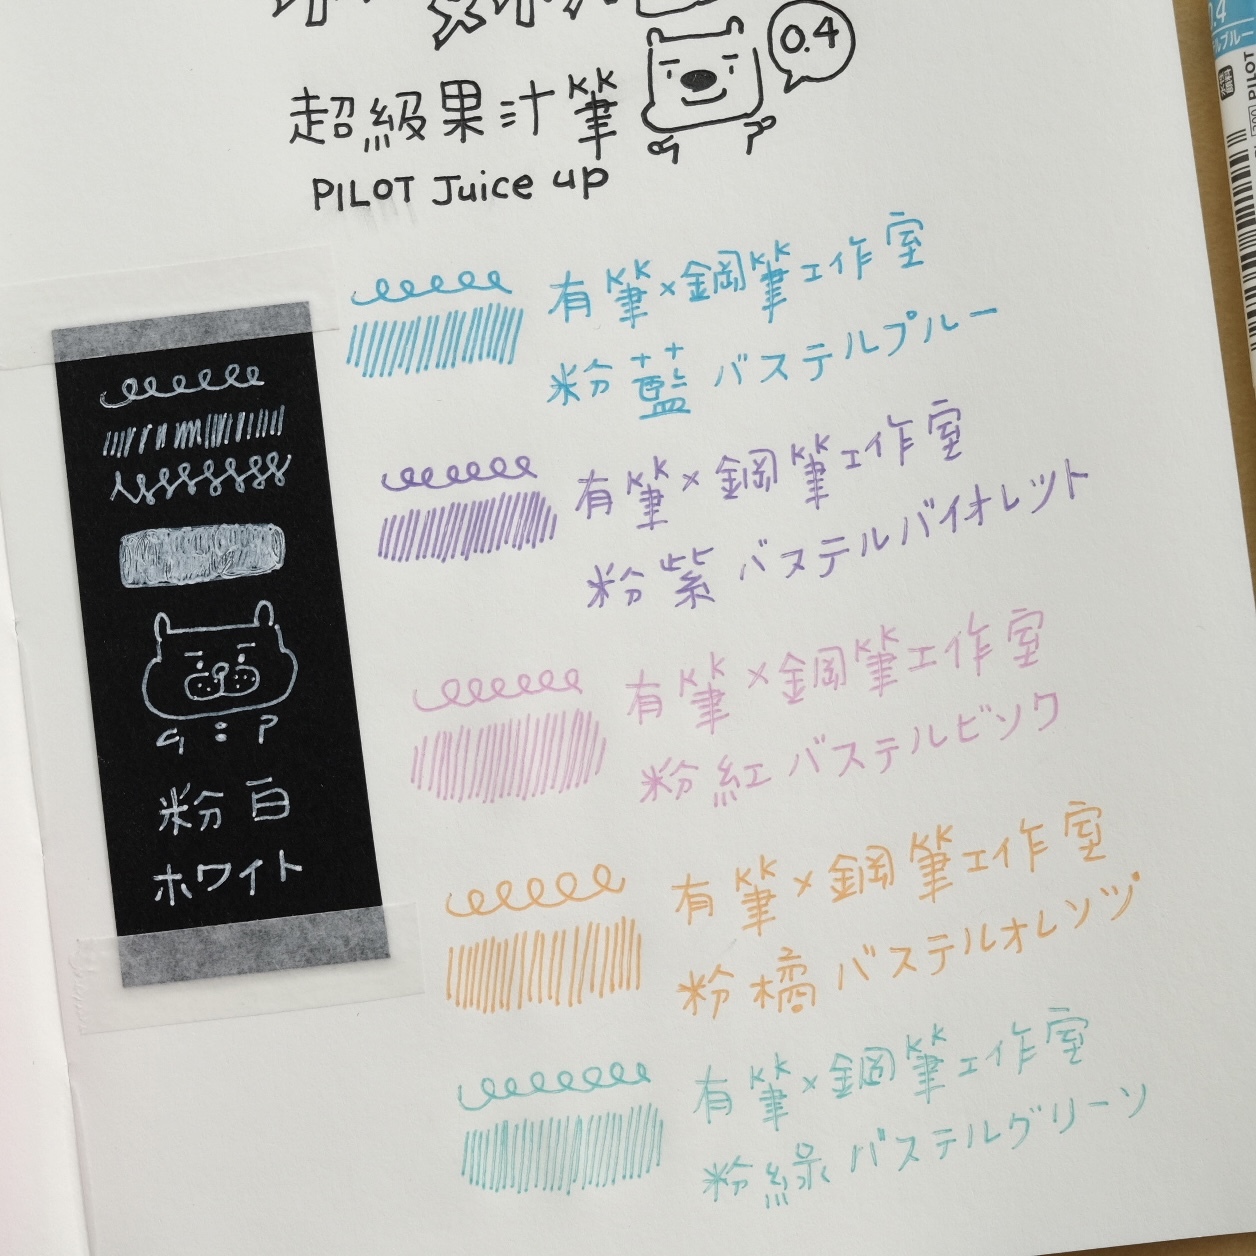 0.4
超級果汁筆
PILOT Juice up
有筆×鋼筆工作室
粉藍 バステルプルー
有筆×鋼筆工作室
粉紫 バステルバイオレット
有筆×鋼筆工作室
粉紅 バステルピンク
有筆×鋼筆工作室
粉橘 バステルオレンヅ
有筆×鋼筆工作室
粉綠 バステルグリーン
粉白
ホワイト
0.4
PILOT